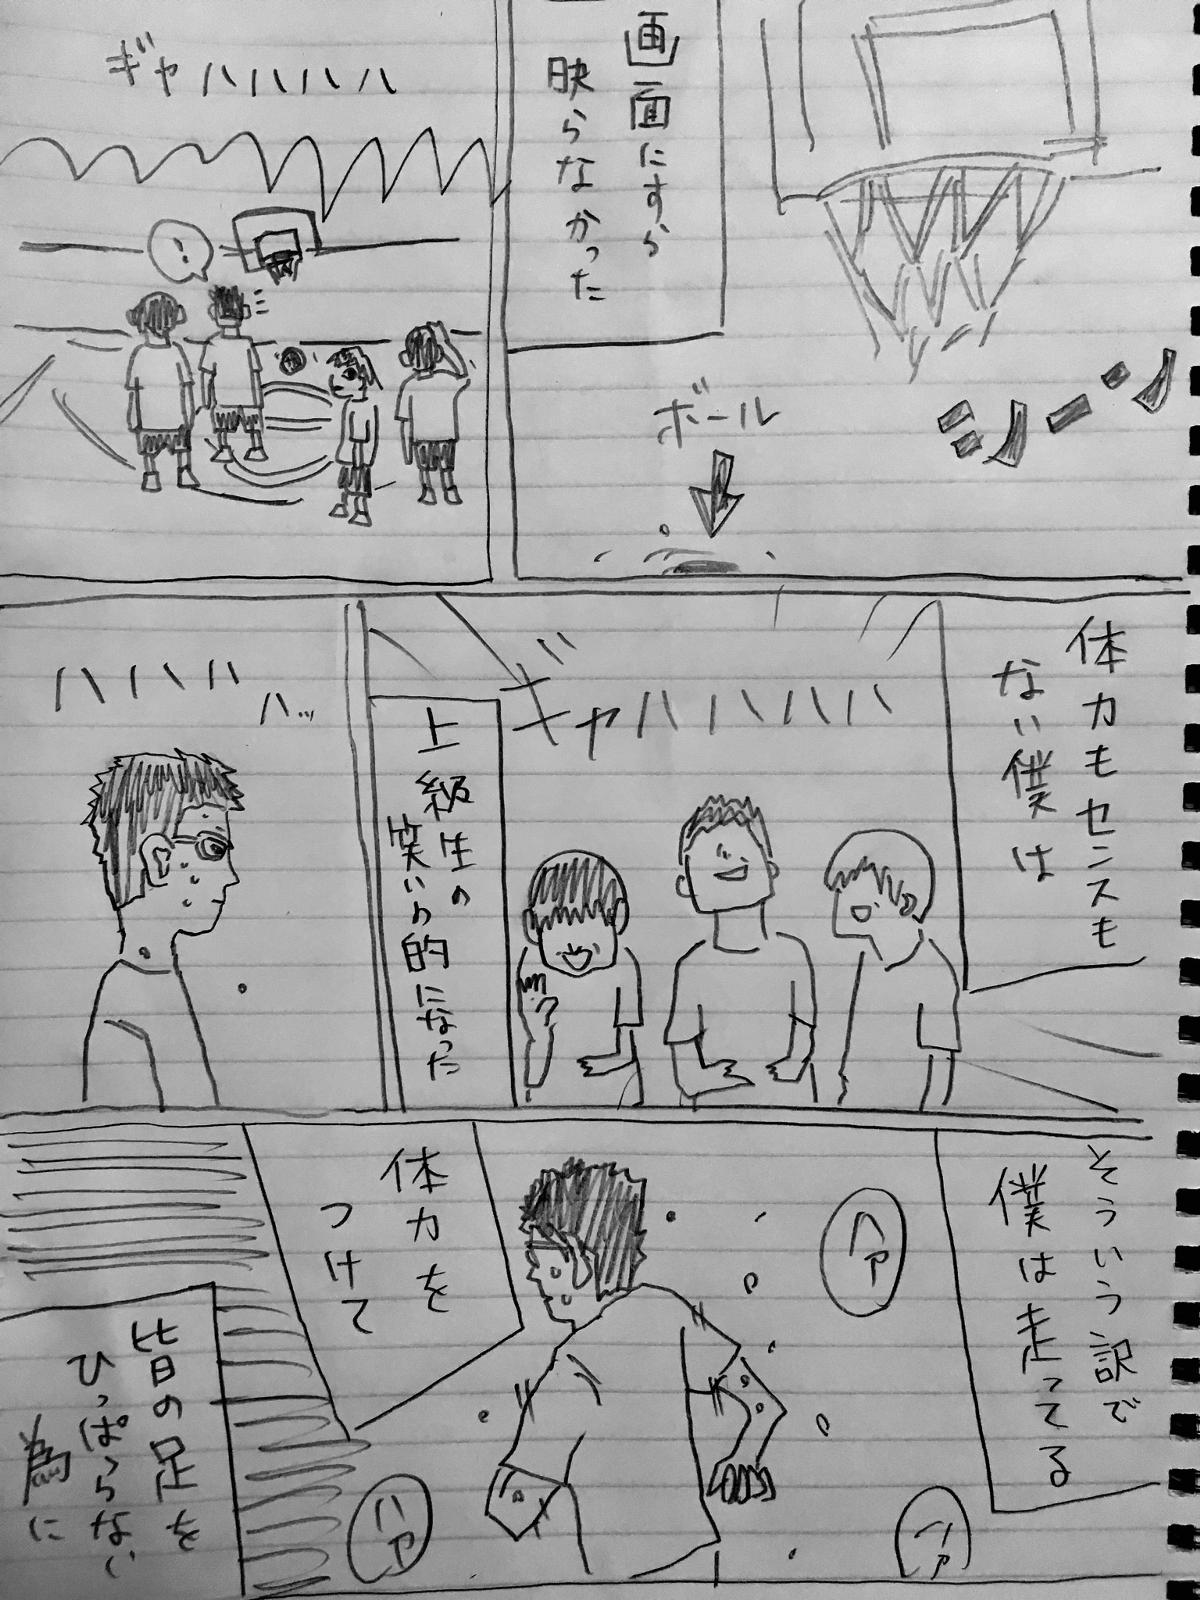 画面にすら
映らなかった
シーン
ボール
ギャハハハハ
!
体力もセンスも
ない僕は
ギャハハハハ
上級生の
笑いの的になった
ハハハ
ハッ
そういう訳で
僕は走ってる
ハァ
ハァ
体力を
つけて
ハァ
皆の足を
ひっぱらない
為に